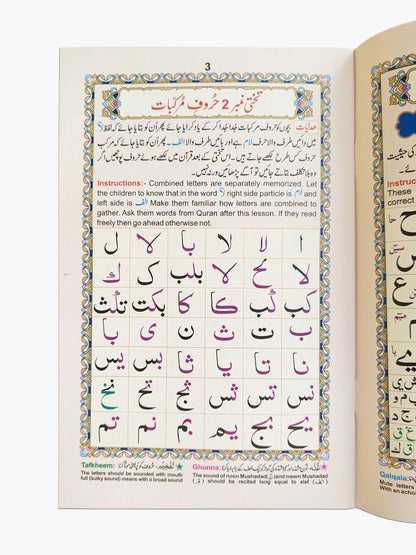 3
تختی نمبر 2 حُروفِ مُرکّبات
ھدایات بچوں کو حروف مرکبات جُدا جُدا کر کے یاد کرایا جائے پھر اُن کو بتایا جائے کہ لفظ لا
میں دائیں طرف والا حرف لام ہے اور بائیں والا الف۔ پھر اُن کو بتایا جائے کہ مرکب
حروف کس طرح لکھے جاتے ہیں۔ اس تختی کے بعد قرآن میں لکھے ہوئے حروف پوچھیں اگر
وہ بلا تکلف بتاتے جائیں تو آگے پڑھائیں ورنہ نہیں۔
Instructions:- Combined letters are
separately memorized. Let
the children to know that in the word لا right side particle is لام and
left side is الف Make them familiar how letters are combined to
gather. Ask them words from Quran after this lesson. If they read
freely then go ahead otherwise not.
ا لا لا با لا ل
لا لح لا بلب ك ك
كب كب كا كا بكت تلث
ب ت ث ن ى با
نا تا يا ثا بس يس
نس تس ثس ثج تح نخ
يج بج يم بم نم تم
Tafkheem:
The letters should be sounded with mouth
full (bulky sound) means with a broad sound
Ghunna:
The sound of noon Mushadad (نّ) and meem Mushadad
(مّ) should be recited long equal to alaf (الف)
Instruc
These
correct
Qalqala:
Mute letters
With an echo